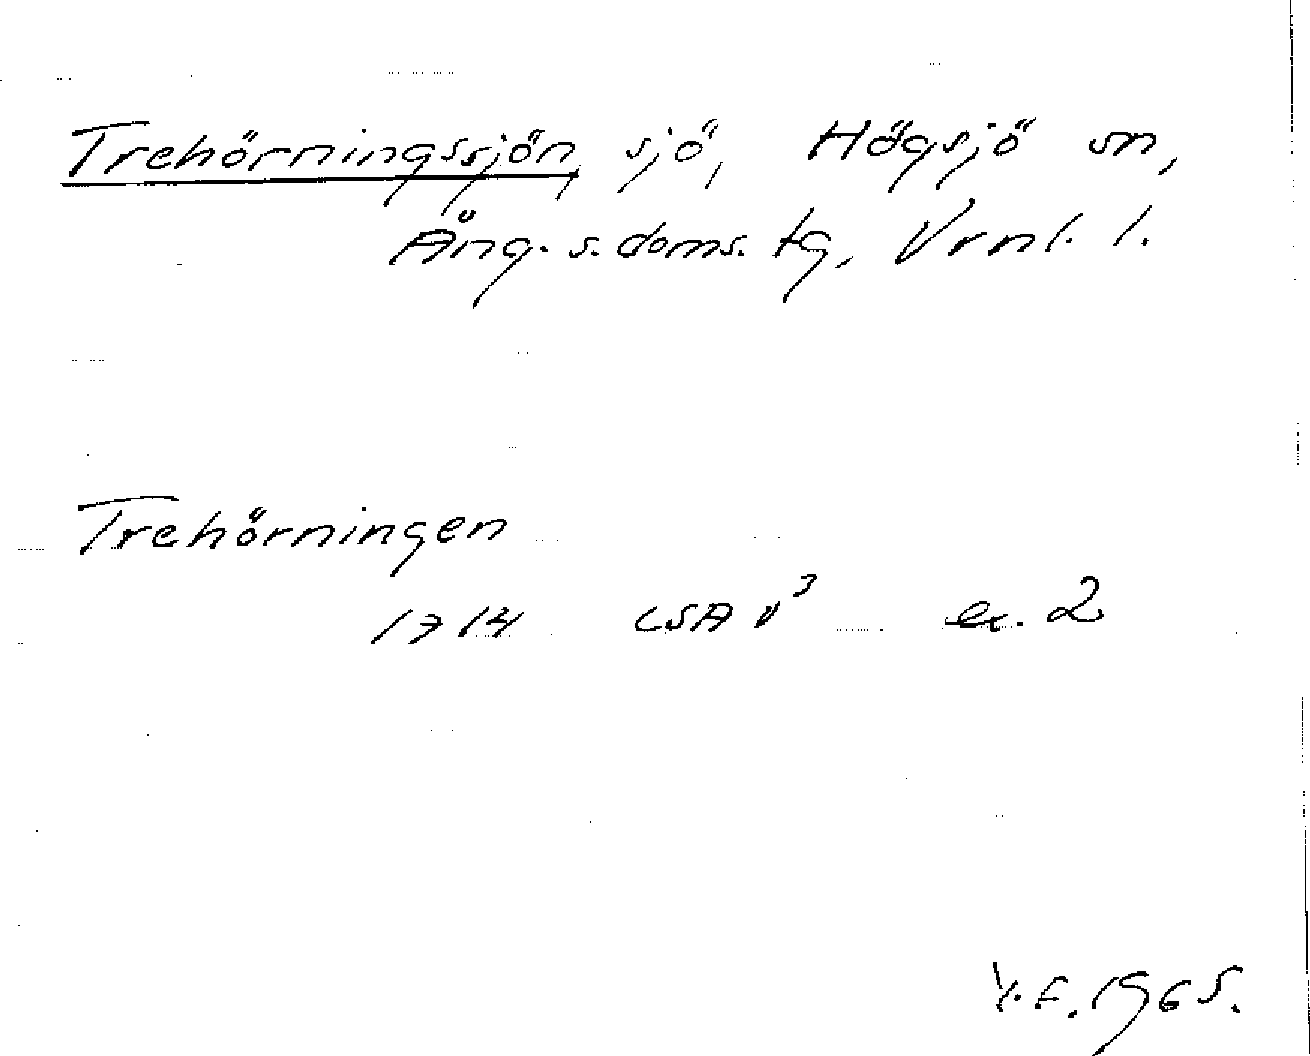 Trehörningssjön, sjö, Högsjö sn,
Ång. s. doms. tg, Vrnl. l.
Trehörningen
1714 LSA v³ ex. 2
Y.F. 1965.